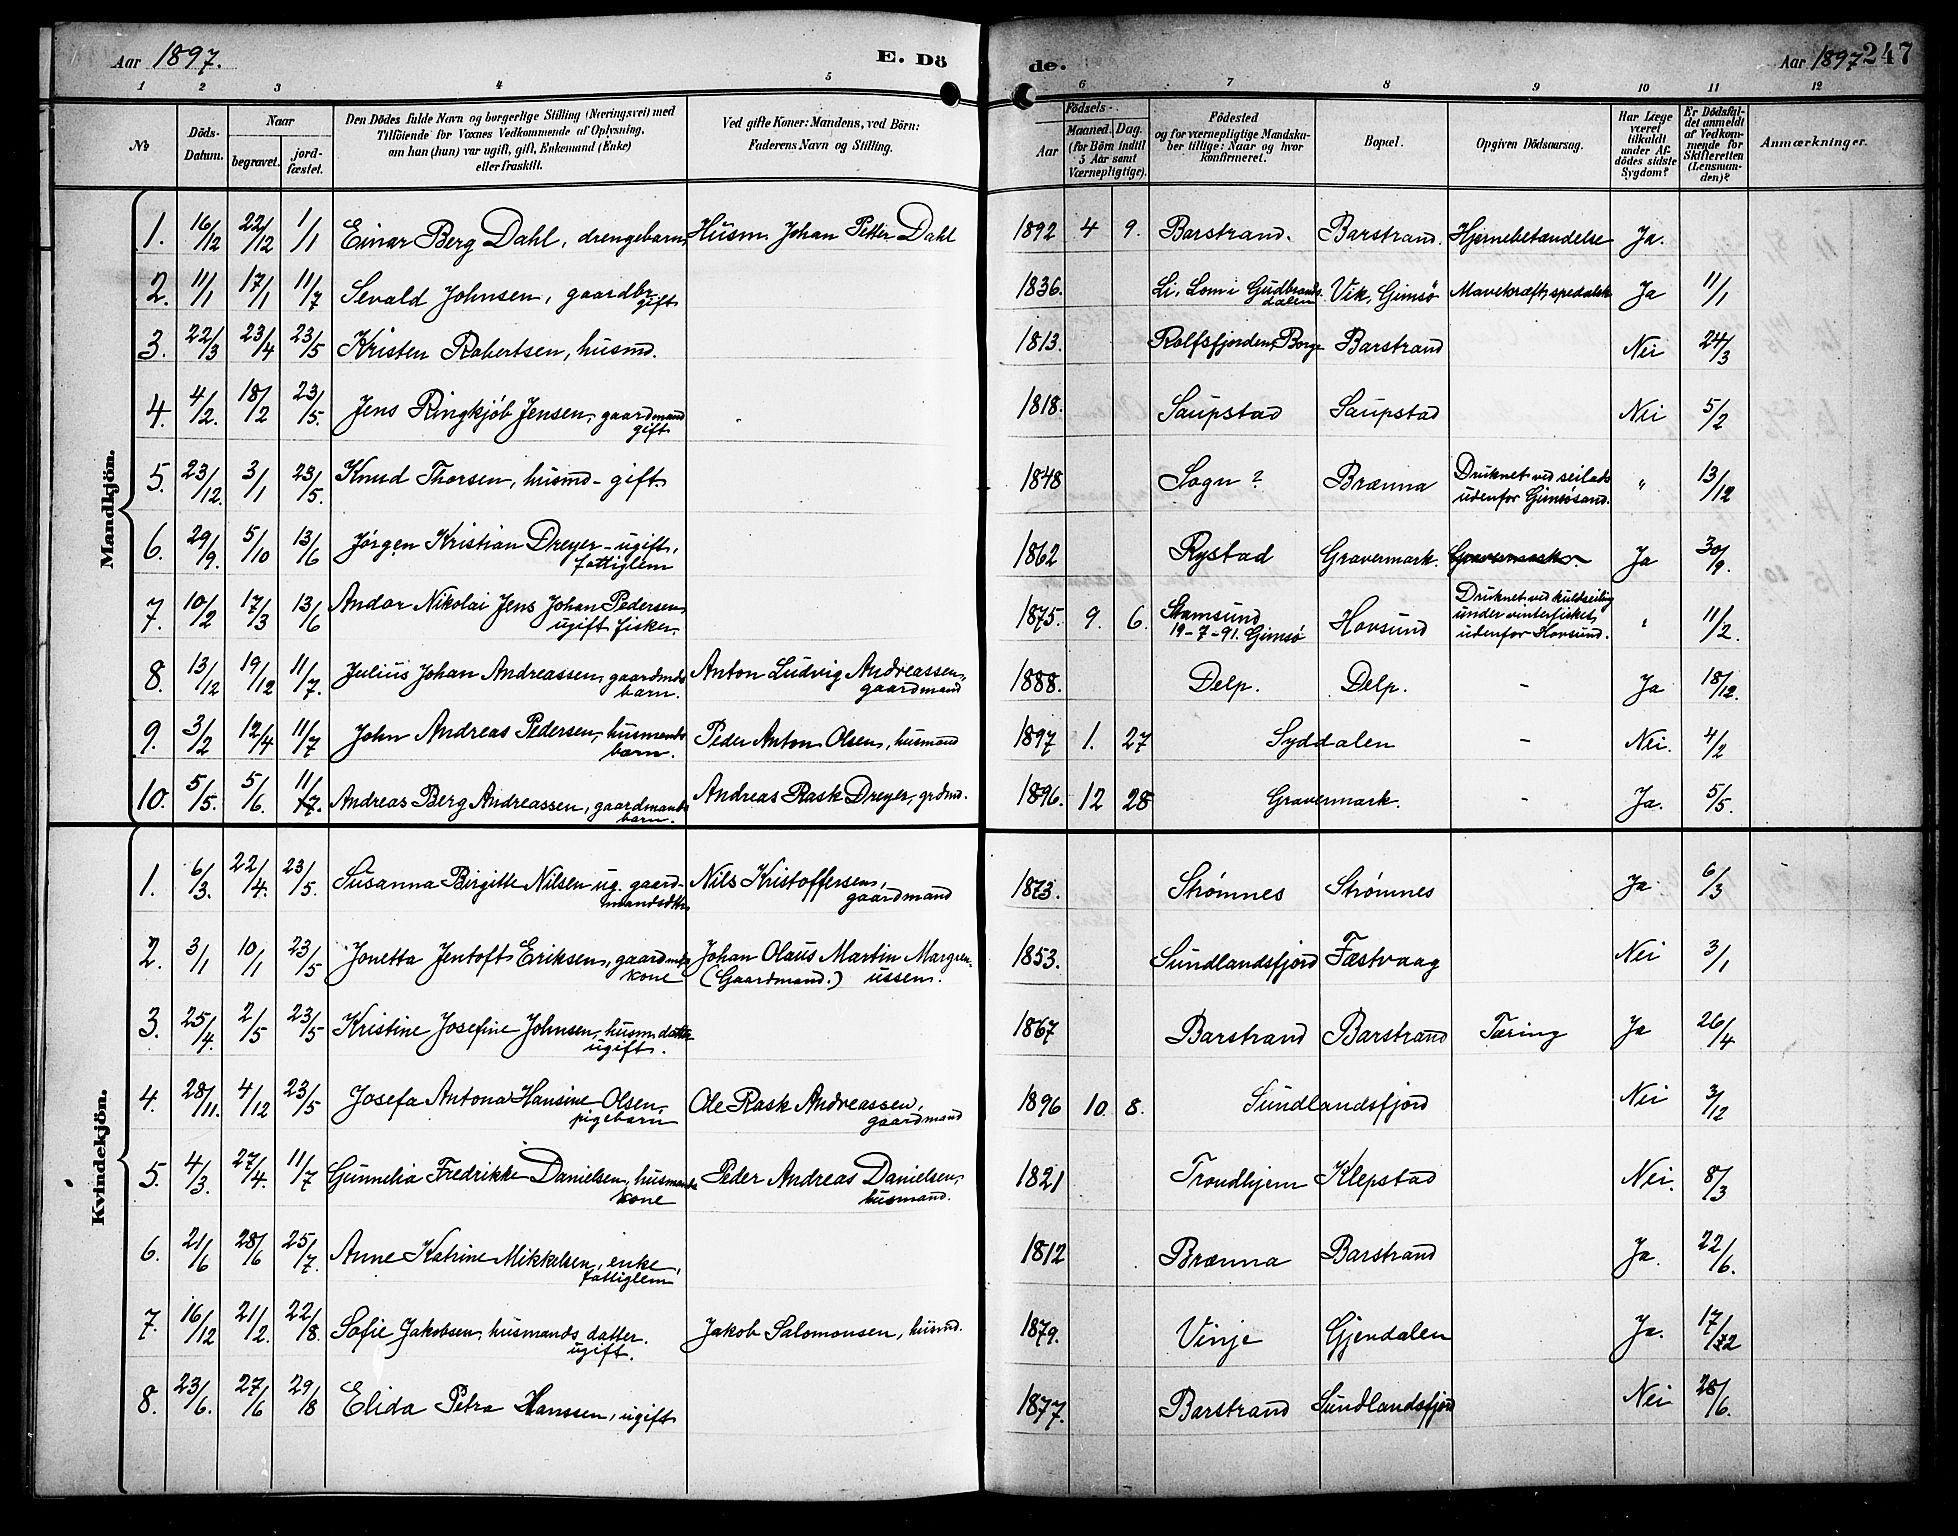 Aar 1897. E. Dö de. Aar 1897 247
1 2 3 4 5 6 7 8 9 10 11 12
No
Döds-Datum.
Naar
begravet.
jordfæstet.
Den Dödes fulde Navn og borgerlige Stilling (Næringsvei) med
Tilföiende for Voxnes Vedkommende af Oplysning,
om han (hun) var ugift, gift, Enkemand (Enke)
eller fraskilt.
Ved gifte Koner: Mandens, ved Börn:
Faderens Navn og Stilling.
Födsels-
Aar
Maaned. Dag.
(for Börn indtil
5 Aar samt
Værnepligtige).
Födested
og for værnepligtige Mandskaber tillige: Naar og hvor
konfirmeret.
Bopæl.
Opgiven Dödsaarsag.
Har Læge
været
tilkaldt
under Afdödes sidste
Sygdom?
Er Dödsfaldet anmeldt
af Vedkommende for
Skifteretten
(Lensmanden)?
Anmærkninger.
Mandkjön.
1. 16/12 22/12 1/1 Einar Berg Dahl, drengebarn Husm. Johan Petter Dahl 1892 4 9. Barstrand. Barstrand. Hjernebetændelse Ja.
2. 11/1 17/1 11/7 Sevald Johnsen, gaardbr. gift 1836. Li, Lom i Gudbrandsdalen Vik, Gimsø Mavekræft, spedalsk Ja 11/1
3. 22/3 23/4 23/5 Kristen Robertsen, husmd. 1813. Rolfsfjorden, Borge Barstrand Nei 24/3
4. 4/2. 18/2 23/5. Jens Ringkjöb Jensen, gaardmand gift 1818. Saupstad Saupstad Nei 5/2
5. 23/12. 3/1 23/5. Knud Thorsen, husmd - gift. 1848 Sogn? Brænna Druknet ved seilads udenfor Gimsøsand. " 13/12
6. 29/9. 5/10 13/6 Jörgen Kristian Dreyer - ugift, fattiglem 1862 Rystad Gravermark. Gravermark. Ja 30/9.
7. 10/2 17/3 13/6 Andor Nikolai Jens Johan Pedersen, ugift fisker. 1875. 9. 6. Stamsund 19-7-91. Gimsö Hovsund Druknet ved kuldseiling under vinterfisket, udenfor Hovsund. " 11/2.
8. 13/12 19/12 11/7. Julius Johan Andreassen, gaardmds barn. Anton Ludvig Andreassen, gaardmand 1888. Delp. Delp. - Ja 18/12.
9. 3/2 12/4 11/7 John Andreas Pedersen, husmands barn. Peder Anton Olsen, husmand 1897 1. 27 Syddalen - Nei. 4/2
10. 5/5. 5/6. 11/7. Andreas Berg Andreassen, gaardmands barn. Andreas Rask Dreyer, grdmd. 1896. 12 28 Gravermark. - Ja. 5/5.
Kvindekjön.
1. 6/3. 22/4. 23/5. Susanna Birgitte Nilsen ug. gaardmandsdtr. Nils Kristoffersen, gaardmand 1873. Strømnes Strømnes Ja. 6/3
2. 3/1 10/1 23/5 Jonetta Jentoft Eriksen, gaardmds kone Johan Olaus Martin Margrenussen. (Gaardmand.) 1853. Sundlandsfjord Fæstvaag Nei 3/1
3. 25/4. 2/5 23/5 Kristine Josefine Johnsen, husm. datter ugift. 1867 Barstrand Barstrand Tæring Ja 26/4
4. 28/11. 4/12 23/5 Josefa Antona Hansine Olsen, pigebarn Ole Rask Andreassen, gaardmand 1896 10. 8. Sundlandsfjord Nei 3/12
5. 4/3. 27/4. 11/7 Gunnelia Fredrikke Danielsen, husmands kone Peder Andreas Danielsen, husmand. 1821 Trondhjem Klepstad Nei. 8/3
6. 21/6 28/6 25/7. Anne Katrine Mikkelsen, enke, fattiglem 1812 Brænna Barstrand Ja. 22/6.
7. 16/12 21/2. 22/8. Sofie Jakobsen, husmands datter. ugift. Jakob Salomonsen, husmd. 1879. Vinje Gjendalen Ja. 17/12
8. 23/6. 27/6 29/8 Elida Petra Hanssen, ugift 1877. Barstrand Sundlandsfjord Nei 28/6.